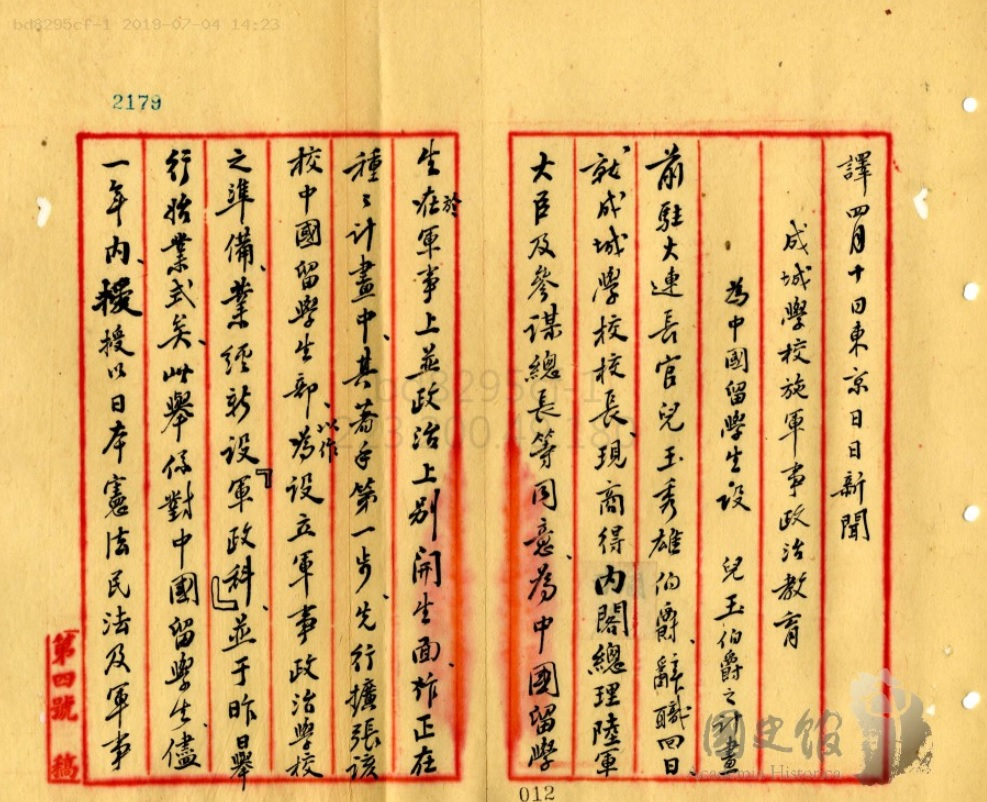 bd8295cf-1 2019-07-04 14:23
2179
譯四月十日東京日日新聞
成城學校施軍事政治教育
為中國留學生設 兒玉伯爵之計畫
前駐大連長官兒玉秀雄伯爵、辭職回日、
就成城學校校長、現商得內閣總理陸軍
大臣及參謀總長等同意、為中國留學
生在於軍事上並政治上別開生面、於正在
種々計畫中、其著手第一步、先行擴張該
校中國留學生部、以作為設立軍事政治學校
之準備、業經新設『軍政科』、並于昨日舉
行始業式矣、此舉係對中國留學生、儘
一年內、授以日本憲法民法及軍事
第四號 稿
012
國史館
Academia Historica
bd8295cf-1